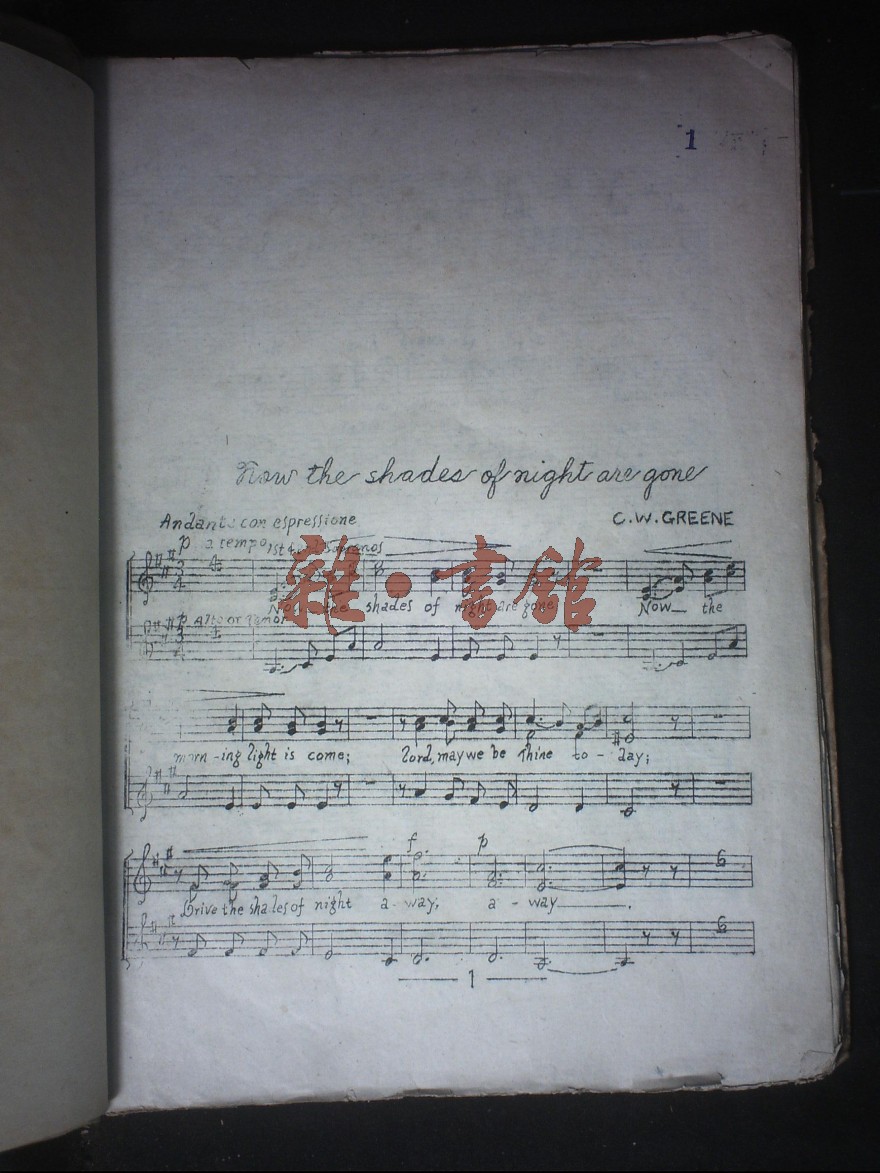 1
Now the shades of night are gone
Andante con espressione
C.W. GREENE
p a tempo 1st & 2nd Sopranos
Now the shades of night are gone Now the
p Alto or Tenor
雜·書館
morn-ing light is come; Lord, may we be Thine to-day;
f p
Drive the shades of night a-way, a-way.
6
6
1